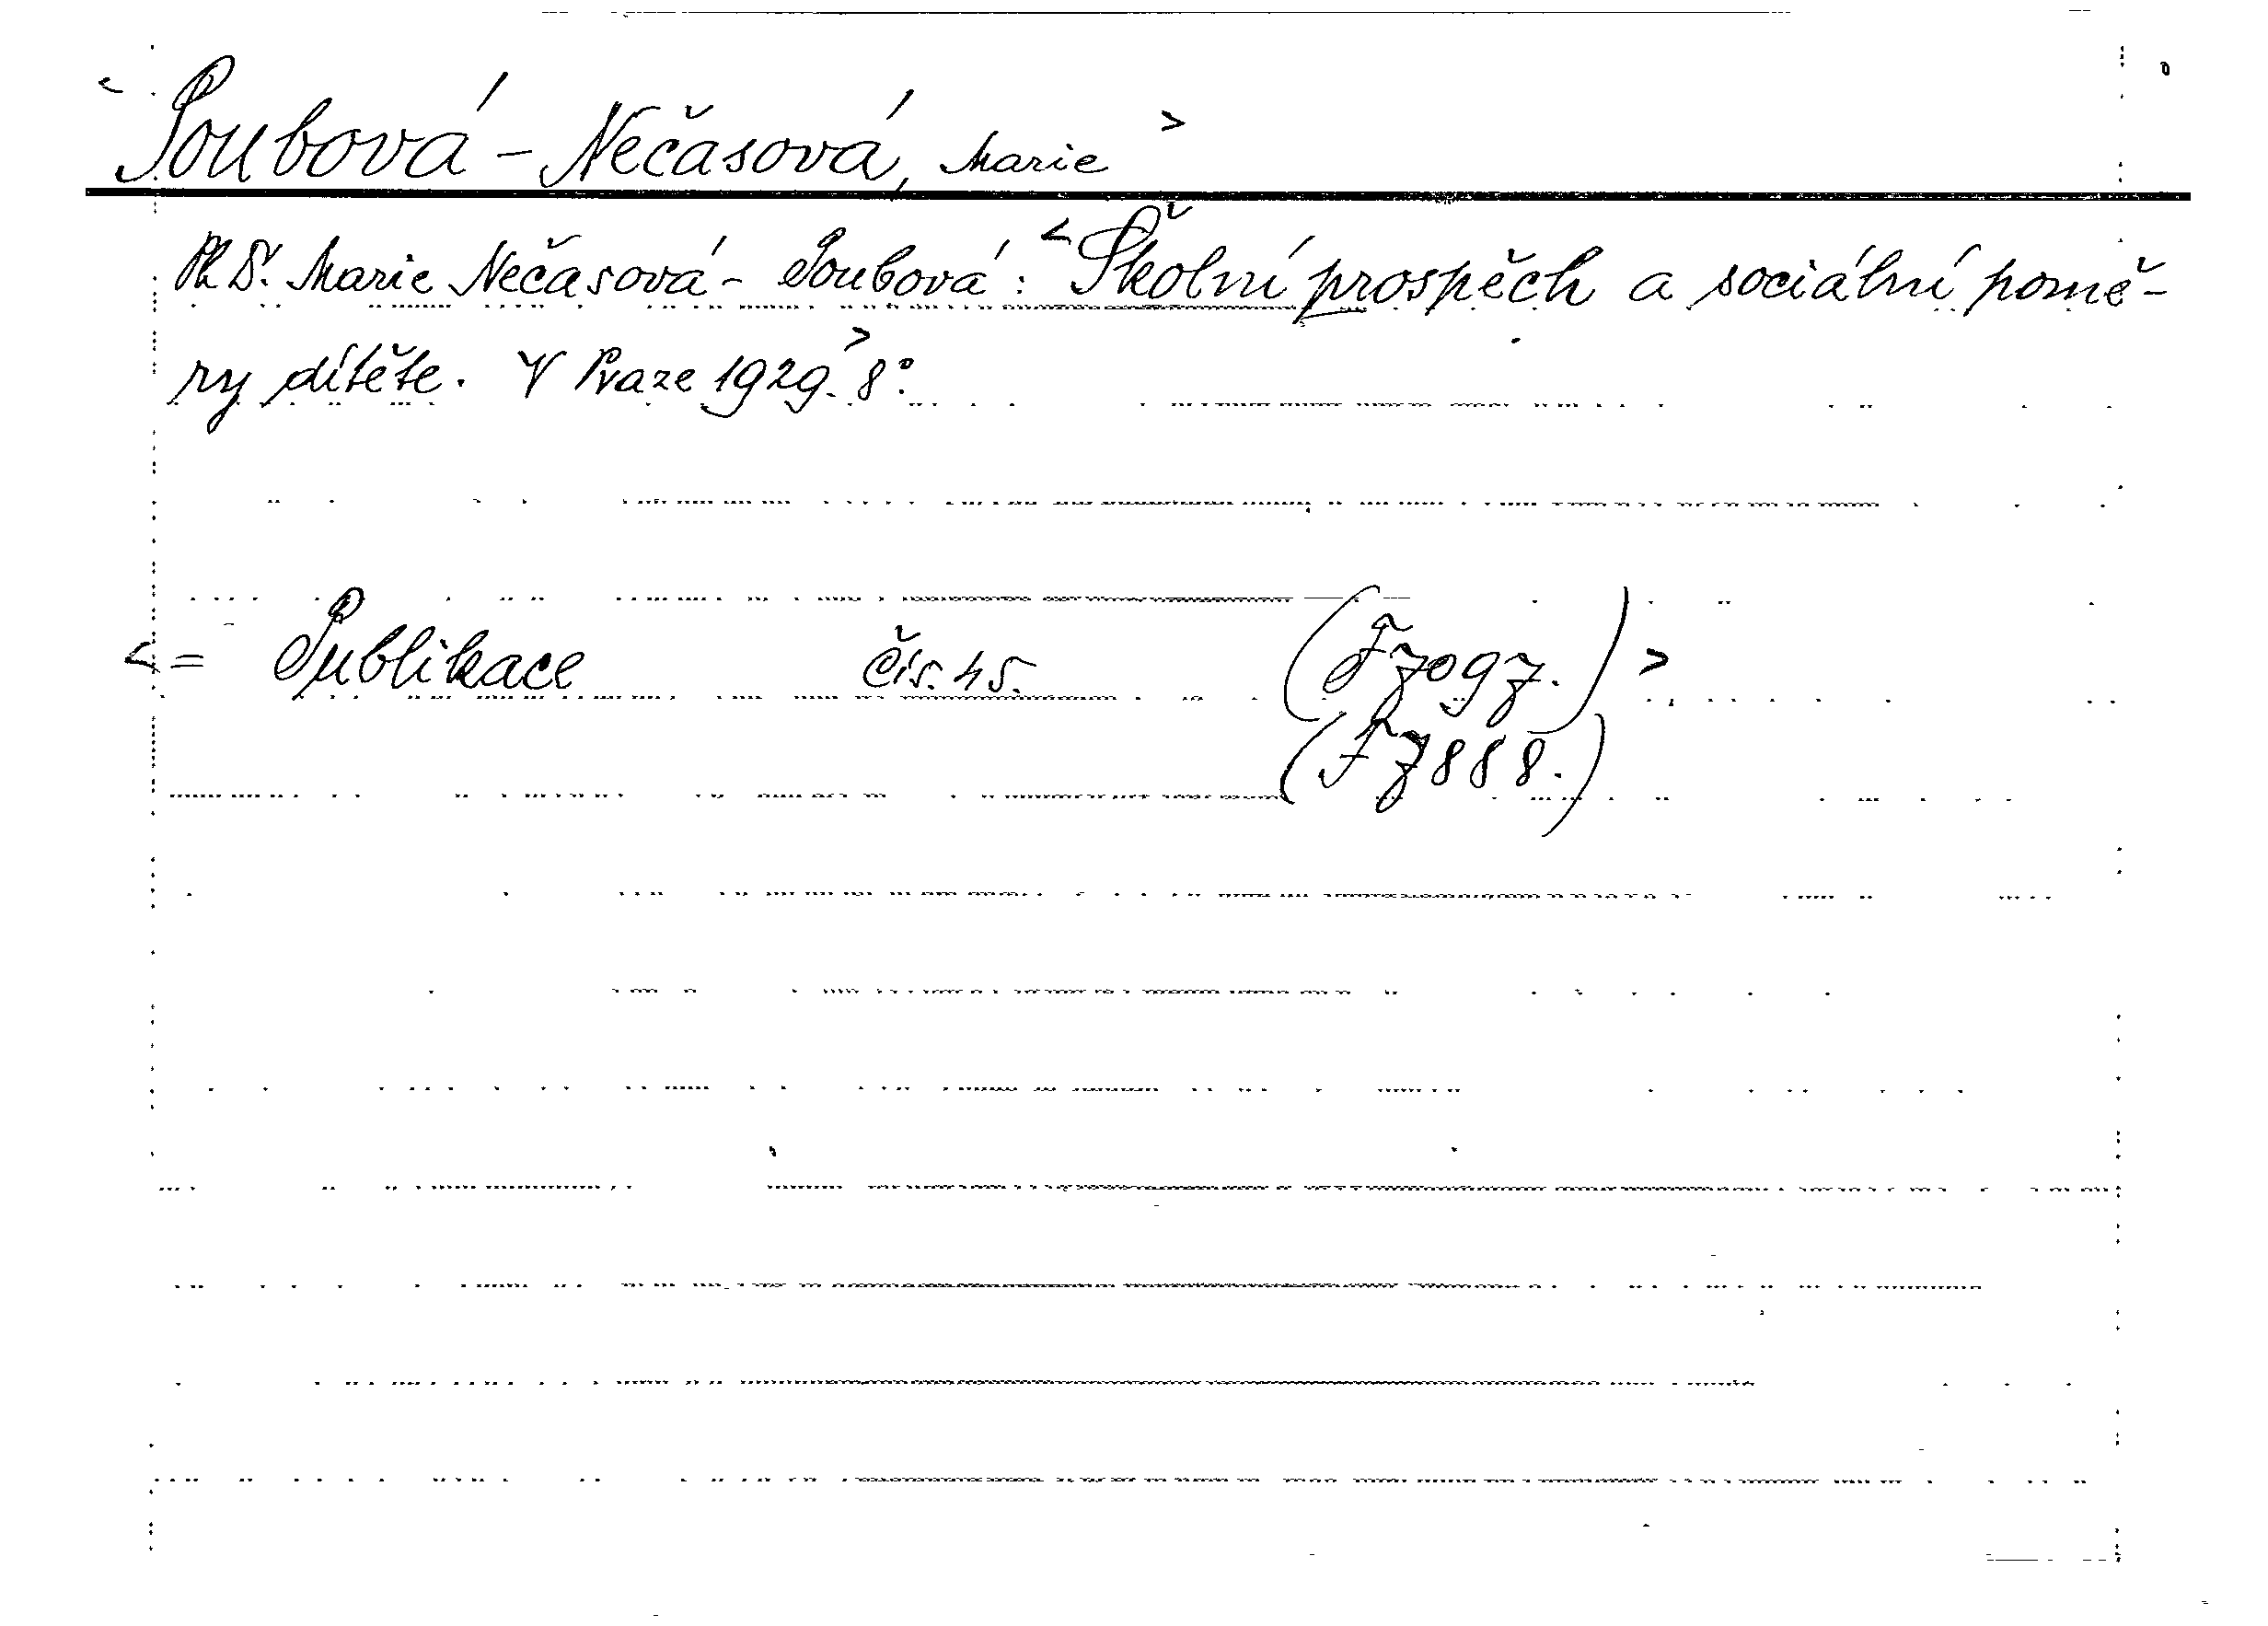 <Soubová - Nečasová, Marie>
PhDr. Marie Nečasová - Soubová: <Školní prospěch a sociální pomě-
ry dítěte. V Praze 1929.> 8°.
<= Publikace čís. 45. (F 7097.)>
(F 7888.)